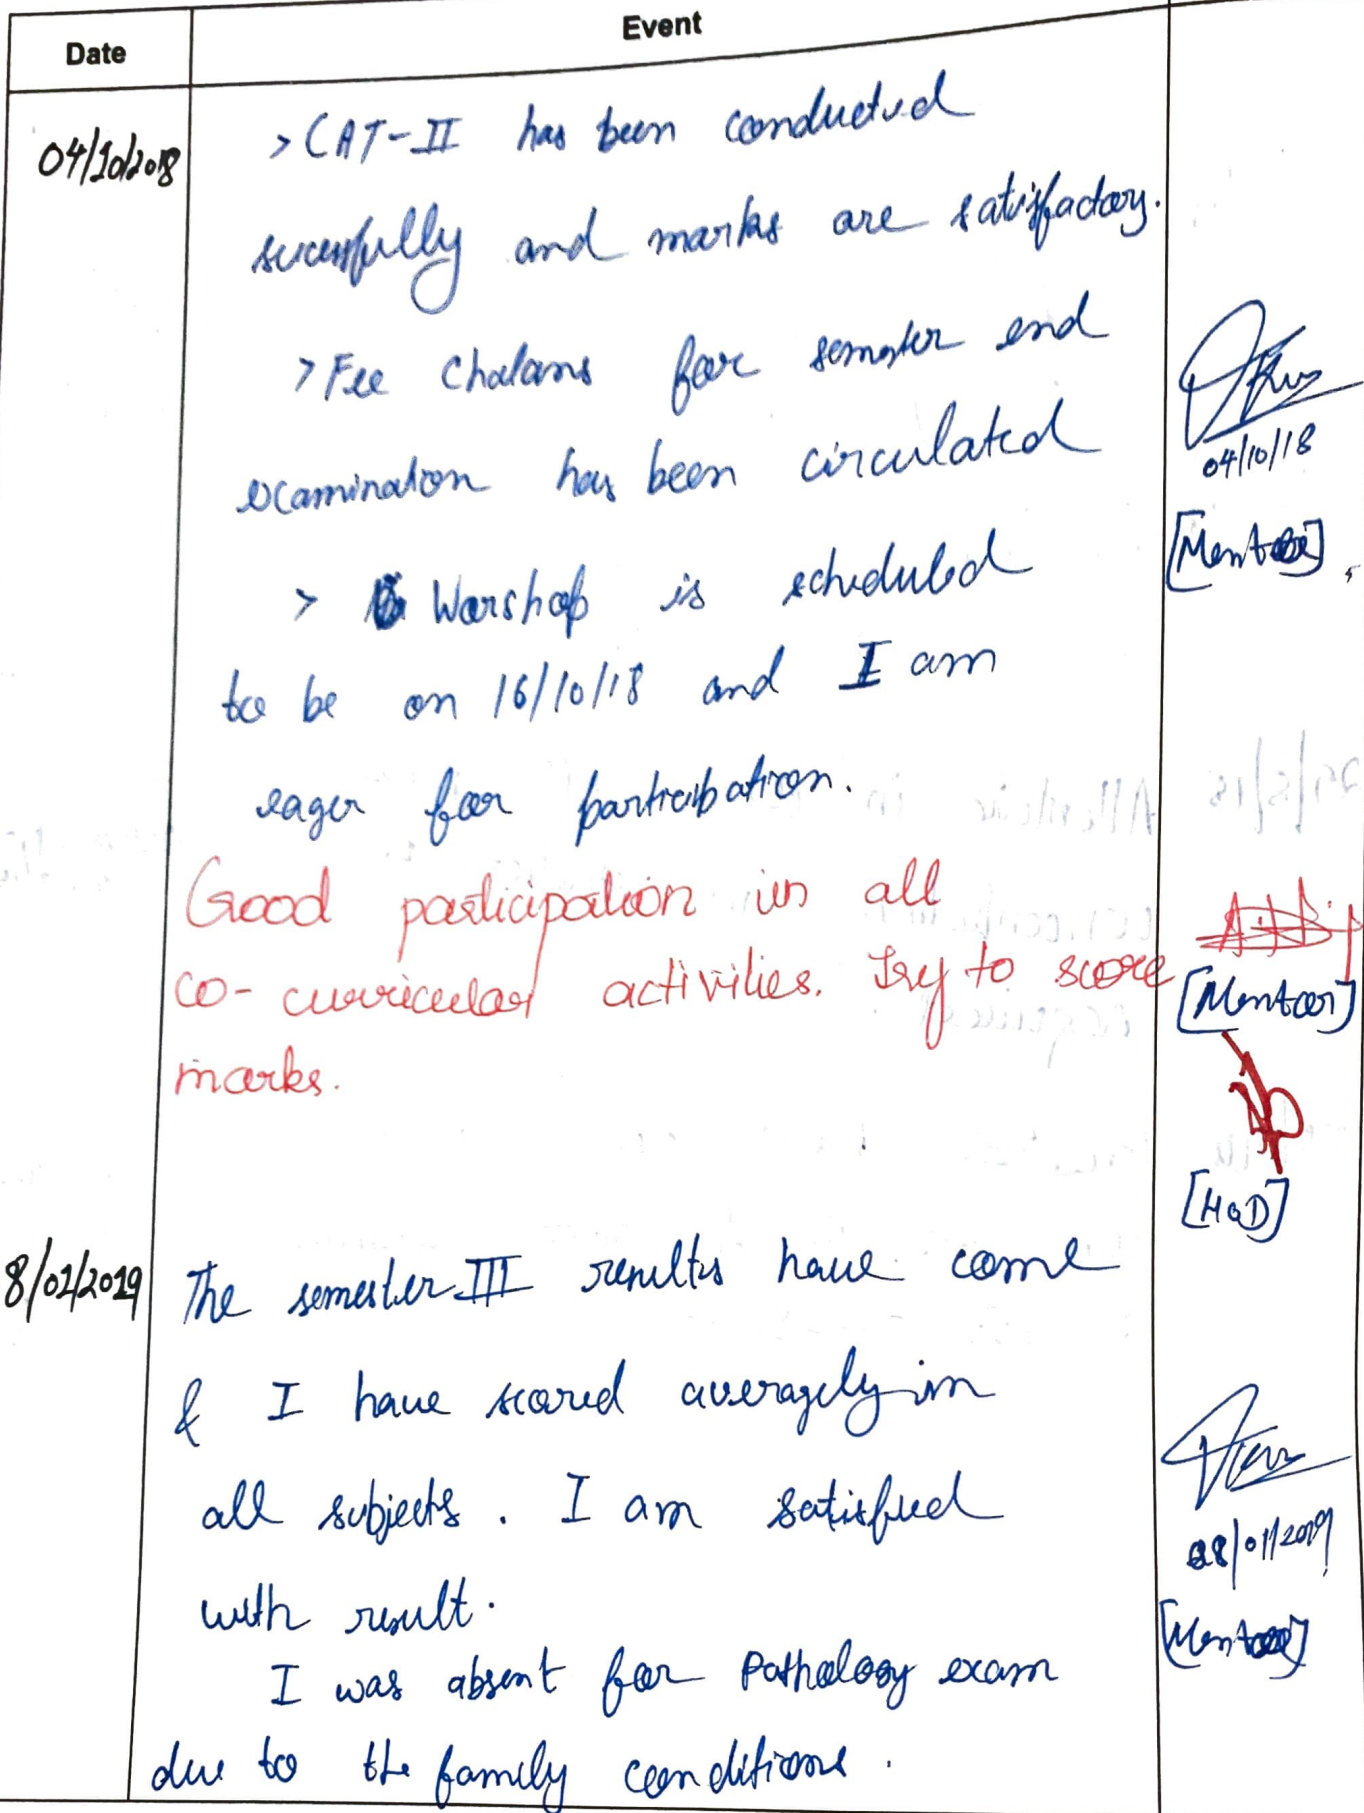 Date
Event
04/10/2018
> CAT-II has been conducted
sucessfully and marks are satisfactory.
> Fee Chalans for semester end
examination has been circulated
04/10/18
[Mentor]
> Warshop is scheduled
to be on 16/10/18 and I am
eager for participation.
Good participation in all
co-curricular activities. Try to score
marks.
[Mentor]
[HOD]
8/01/2019
The semester III results have come
& I have scored averagely in
all subjects. I am satisfied
with result.
08/01/2019
[Mentor]
I was absent for Pathology exam
due to the family conditions.